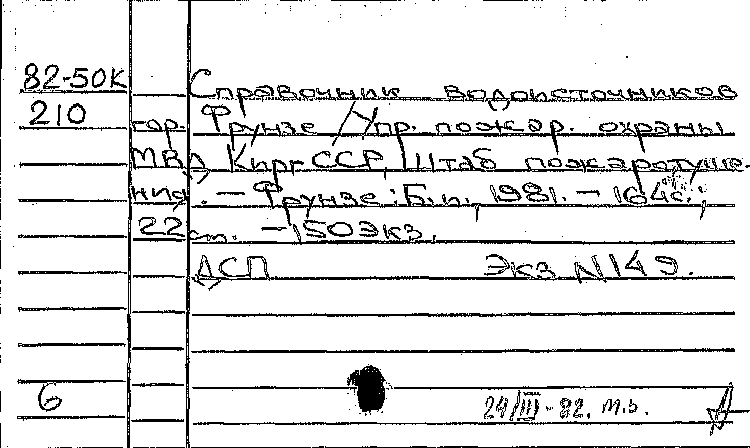 82-50К Справочник водоисточников
210 гор. Фрунзе / Упр. пожар. охраны
МВД Кирг ССР, Штаб пожаротуше-
ния. — Фрунзе: Б.и., 1981. — 164с.;
22 см. — 150 экз.
ДСП Экз N149.
6 24/III-82. т.з.